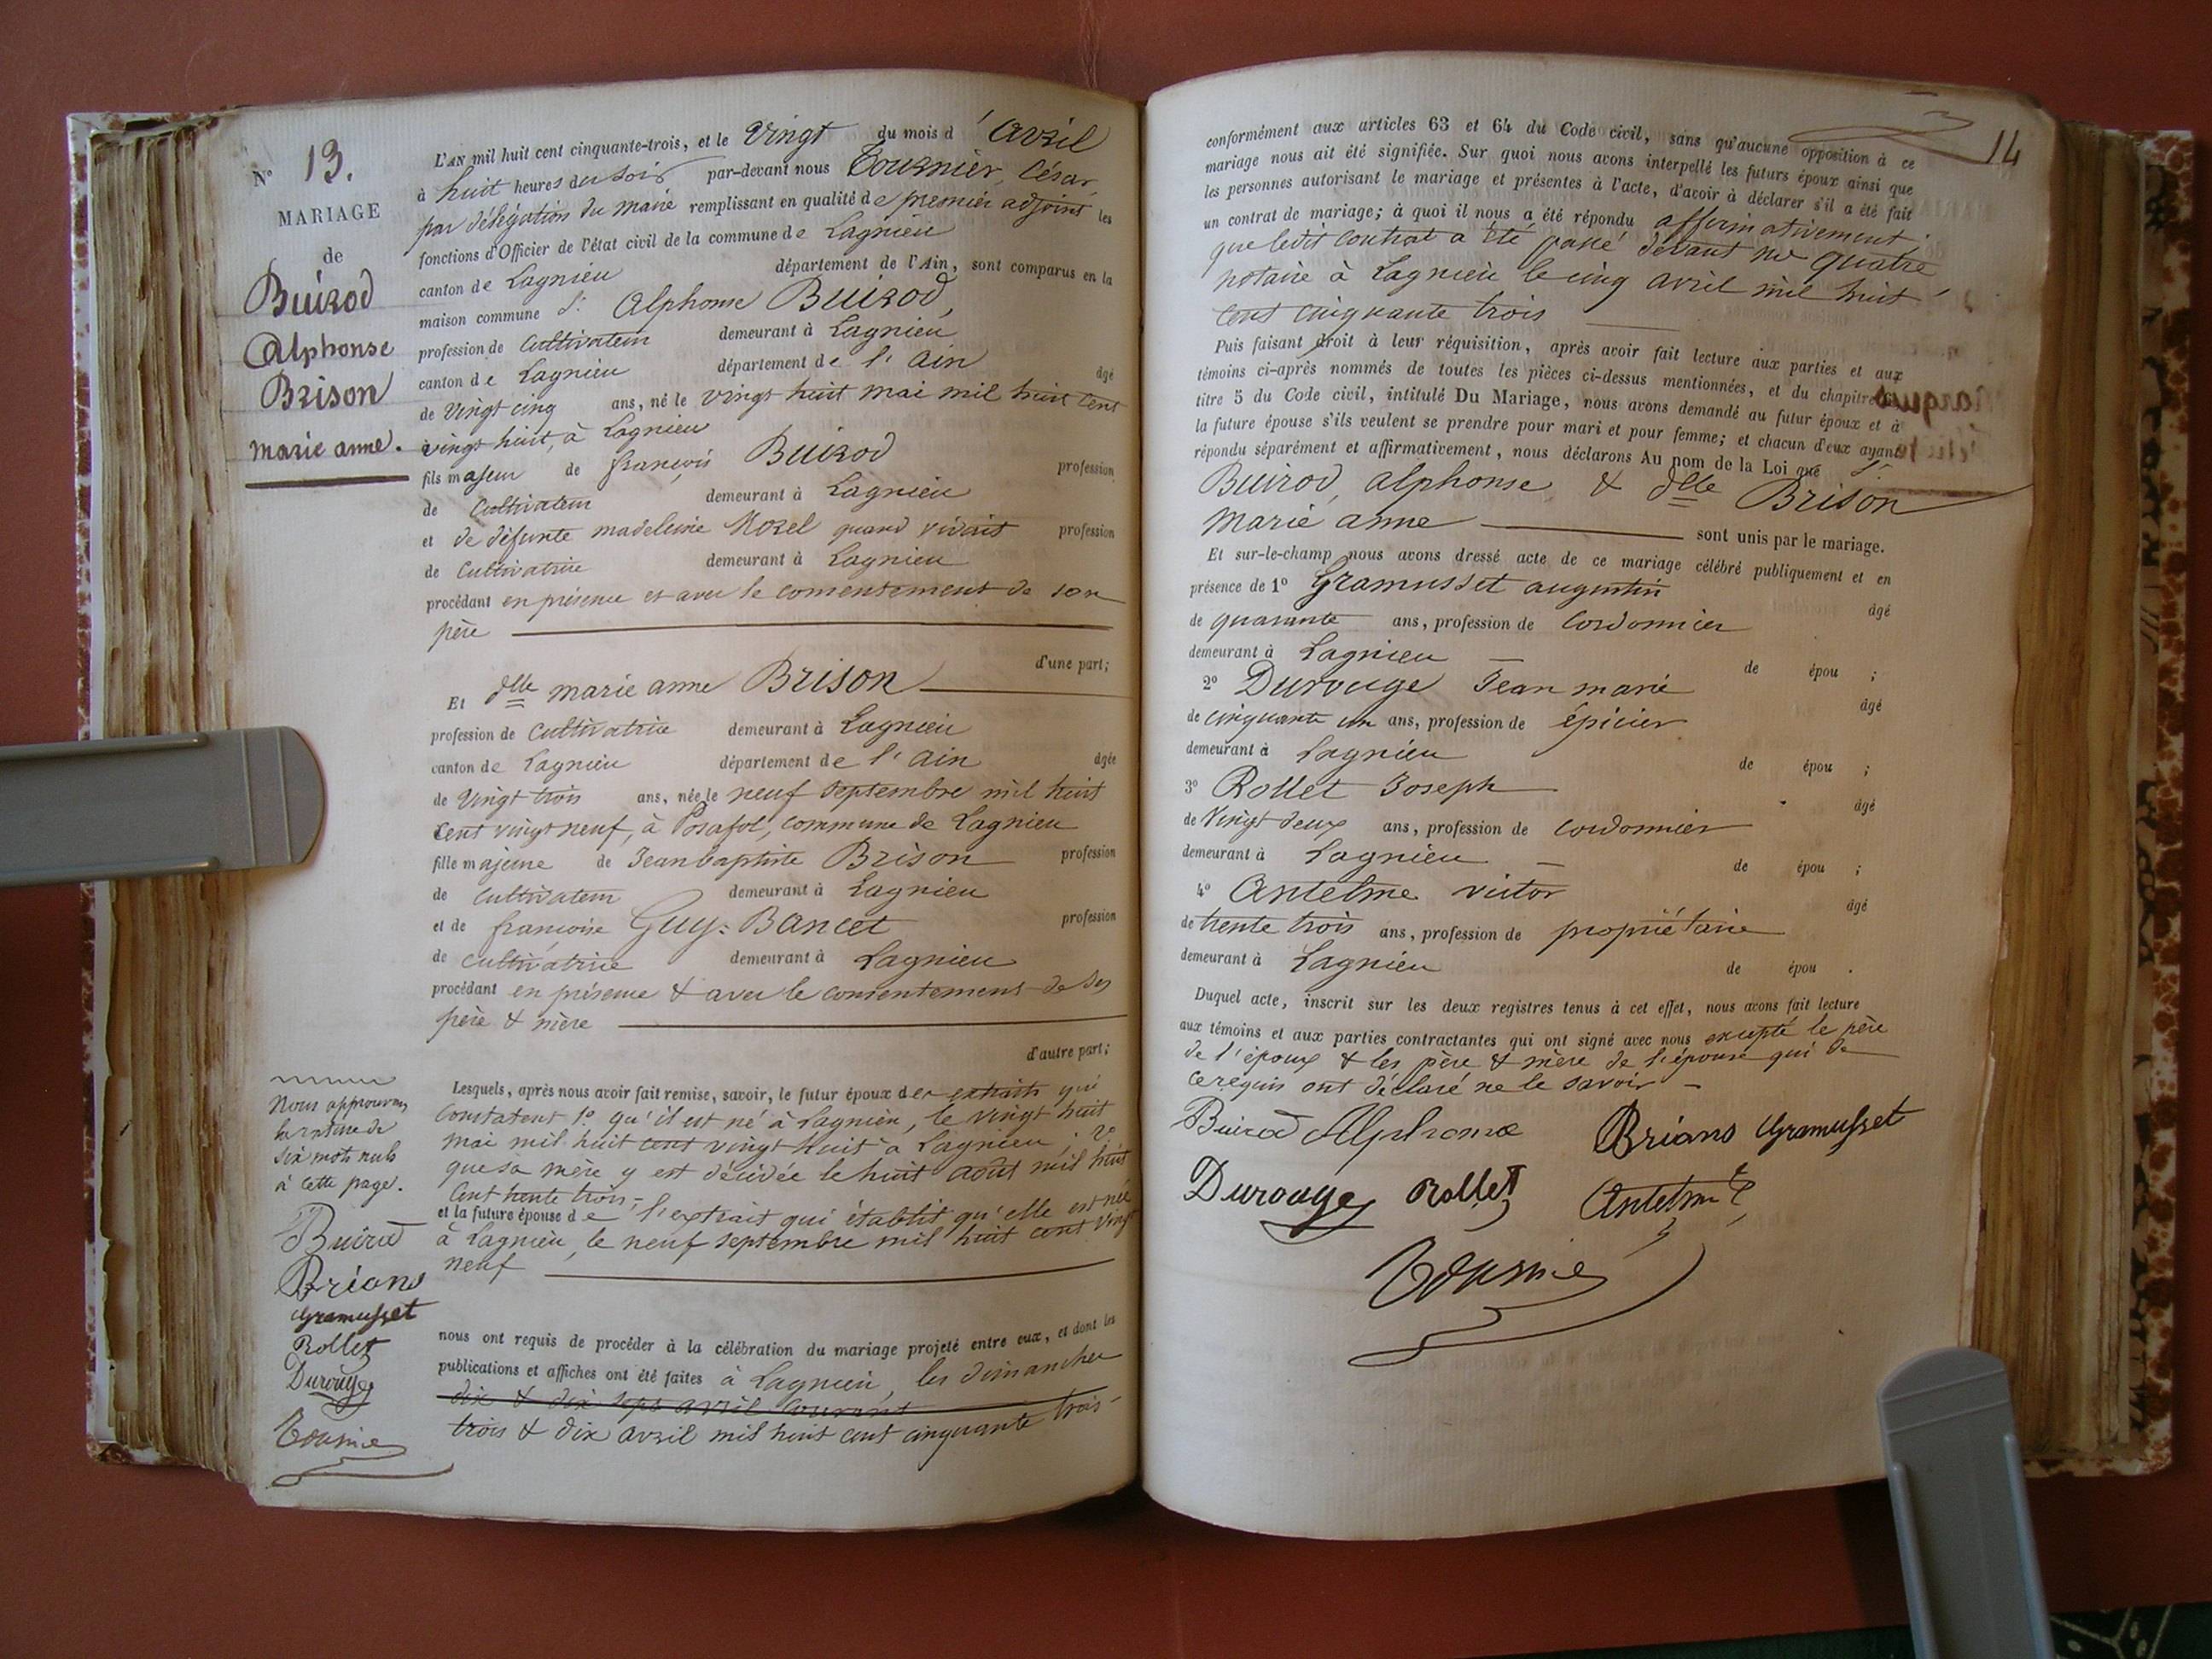 N° 13.
MARIAGE
de
Buirod
Alphonse
Brison
marie anne.
L'AN mil huit cent cinquante-trois, et le Vingt du mois d'avril
à huit heures du soir par-devant nous Tournier, César,
par délégation du maire remplissant en qualité de premier adjoint les
fonctions d'Officier de l'état civil de la commune de Lagnieu
canton de Lagnieu département de l'Ain, sont comparus en la
maison commune Sr. Alphonse Buirod,
profession de Cultivateur demeurant à Lagnieu
canton de Lagnieu département de l'ain âgé
de Vingt cinq ans, né le vingt huit mai mil huit cent
vingt huit, à Lagnieu
fils majeur de françois Buirod profession
de Cultivateur demeurant à Lagnieu
et de défunte madeleine Morel quand vivait profession
de Cultivatrice demeurant à Lagnieu
procédant en présence et avec le consentement de son
père
d'une part;
Et dlle marie anne Brison
profession de Cultivatrice demeurant à Lagnieu
canton de Lagnieu département de l'ain âgée
de Vingt trois ans, née le neuf septembre mil huit
cent vingt neuf, à Posafol, commune de Lagnieu
fille majeure de Jean baptiste Brison profession
de cultivateur demeurant à Lagnieu
et de françoise Guy-Bancet profession
de cultivatrice demeurant à Lagnieu
procédant en présence & avec le consentement de ses
père & mère
d'autre part;
Lesquels, après nous avoir fait remise, savoir, le futur époux des extraits qui
constatent 1° qu'il est né à Lagnieu, le vingt huit
mai mil huit cent vingt huit à Lagnieu; 2°
que sa mère y est décédée le huit août mil huit
cent trente trois;
et la future épouse de l'extrait qui établit qu'elle est née
à Lagnieu, le neuf septembre mil huit cent vingt
neuf
nous ont requis de procéder à la célébration du mariage projeté entre eux, et dont les
publications et affiches ont été faites à Lagnieu, les dimanches
dix & dix sept avril courant
trois & dix avril mil huit cent cinquante trois
Nous approuvons
la rature de
six mots nuls
à cette page.
Buirod
Briano
Gramusset
Rollet
Durouge
Tournier
14
conformément aux articles 63 et 64 du Code civil, sans qu'aucune opposition à ce
mariage nous ait été signifiée. Sur quoi nous avons interpellé les futurs époux ainsi que
les personnes autorisant le mariage et présentes à l'acte, d'avoir à déclarer s'il a été fait
un contrat de mariage; à quoi il nous a été répondu affirmativement
que ledit contrat a été passé devant me quatre
notaire à Lagnieu le cinq avril mil huit
cent cinquante trois
Puis faisant droit à leur réquisition, après avoir fait lecture aux parties et aux
témoins ci-après nommés de toutes les pièces ci-dessus mentionnées, et du chapitre
titre 5 du Code civil, intitulé Du Mariage, nous avons demandé au futur époux et à
la future épouse s'ils veulent se prendre pour mari et pour femme; et chacun d'eux ayant
répondu séparément et affirmativement, nous déclarons Au nom de la Loi que Sr.
Buirod, alphonse & dlle Brison
Marie anne sont unis par le mariage.
Et sur-le-champ nous avons dressé acte de ce mariage célébré publiquement et en
présence de 1° Gramusset augustin âgé
de quarante ans, profession de Cordonnier
demeurant à Lagnieu de épou ;
2° Durouge Jean marie âgé
de cinquante un ans, profession de épicier
demeurant à Lagnieu de épou ;
3° Rollet Joseph âgé
de Vingt deux ans, profession de cordonnier
demeurant à Lagnieu de épou ;
4° Antelme victor âgé
de trente trois ans, profession de propriétaire
demeurant à Lagnieu de épou .
Duquel acte, inscrit sur les deux registres tenus à cet effet, nous avons fait lecture
aux témoins et aux parties contractantes qui ont signé avec nous excepté le père
de l'époux & les père & mère de l'épouse qui de
ce requis ont déclaré ne le savoir
Buirod Alphonse Briano Gramusset
Durouge Rollet Antelme
Tournier